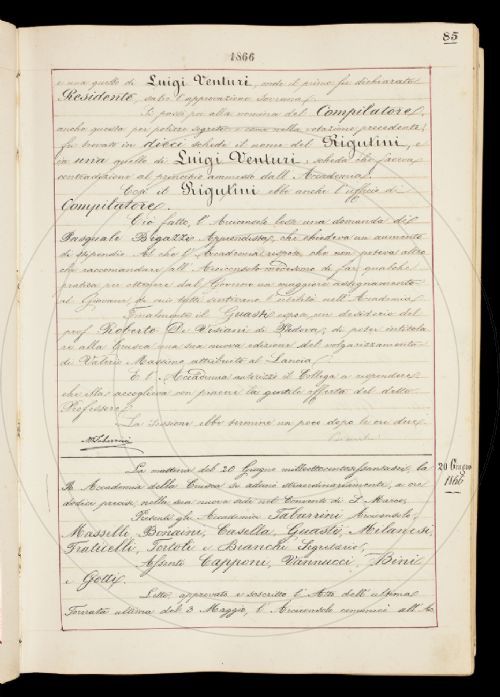 85
1866
e una quello di Luigi Venturi, onde il primo fu dichiarato
Residente, salvo l'approvazione Sovrana.
Si passò poi alla nomina del Compilatore,
anche questa per polizze segrete e come nella votazione precedente,
fu trovato in dieci schede il nome del Rigutini, e
in una quello di Luigi Venturi, scheda che faceva
contradizione al principio ammesso dall'Accademia.
Così il Rigutini ebbe anche l'ufficio di
Compilatore.
Ciò fatto, l'Arciconsolo lesse una domanda di
Pasquale Bigazzi Apprendista, che chiedeva un aumento
di stipendio. Al che l'Accademia rispose che non poteva altro
che raccomandare all'Arciconsolo medesimo di far qualche
pratica per ottenere dal Governo un maggiore assegnamento
al Giovane, di cui tutti sentivano l'utilità nell'Accademia.
Finalmente il Guasti espose un desiderio del
prof. Roberto De Visiani di Padova, di poter intitola
re alla Crusca una sua nuova edizione del volgarizzamento
di Valerio Massimo attribuito al Lancia.
E l'Accademia autorizzò il Collega a rispondere
che Ella accoglieva con piacere la gentile offerta del detto
Professore.
La Sessione ebbe termine un poco dopo le ore due.
M. Tabarrini
20 Giugno
1866
La mattina del 20 Giugno milleottocentosessantasei, la
R. Accademia della Crusca si adunò straordinariamente, a ore
dodici precise, nella sua nuova sede nel Convento di S. Marco.
Presenti gli Accademici Tabarrini Arciconsolo,
Masselli, Bonaini, Casella, Guasti, Milanesi,
Fraticelli, Tortoli e Bianchi Segretario.
Assenti Capponi, Vannucci, Bini
e Gotti.
Letto, approvato e soscritto l'Atto dell'ultima
Tornata ultima del 3 Maggio, l'Arciconsolo comunicò all'Ac